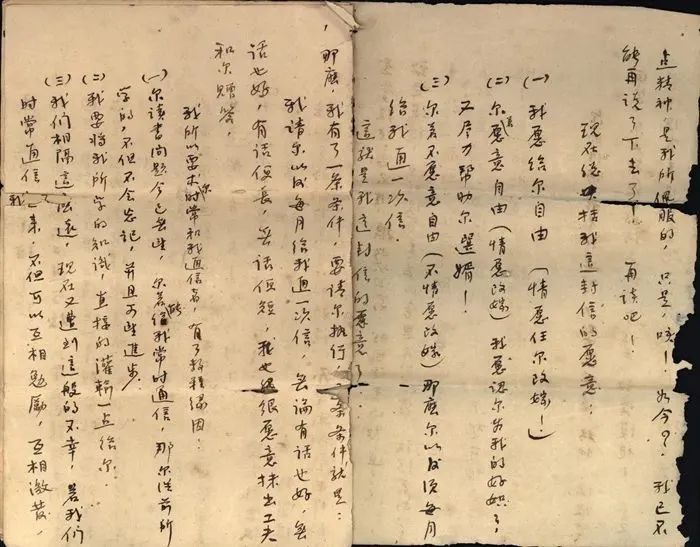 点精神是我所佩服的，只是，唉！如今？我已不
能再说了下去了！ 再谈吧！
现在总括我这一封信的意思：
（一）我愿给尔自由（情愿任尔改嫁！）
（二）尔愿意自由（情愿改嫁）我愿认尔为我的好姊了，
又尽力帮助尔选婿！
（三）尔若不愿意自由（不情愿改嫁）那麽尔以后须每月
给我通一次信。
这就是我这封信的意思了。
那麽，我有了一条条件，要请尔执行，条件就是：
我请尔以后每月给我通一次信，无论有话也好，无
话也好，有话便长，无话便短，我也很愿意抹出工夫
和尔赠答，
我所以要求尔时常和我通信者，有了数种缘因：
（一）尔读书问题今已无望，尔若能给我常时通信，那尔从前所
学的，不但不会忘记，并且可望进步。
（二）我要将我所学的知识，直接的灌输一点给尔。
（三）我们相隔这么远，现在又遭到这般的不幸，若我们
时常通信来，不但可以互相勉励，互相激发，